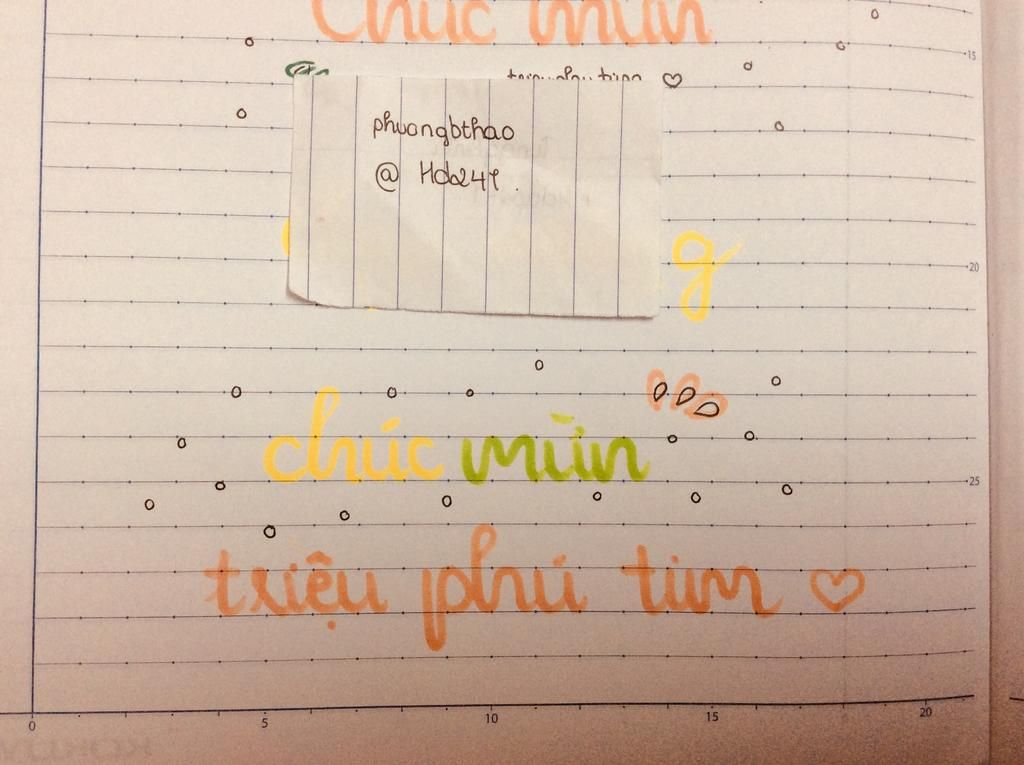 Chúc mừn
triệu phú tim ♡
phuongbthao
@ Hda247
g
chúc mừn
triệu phú tim ♡
15
20
25
0 5 10 15 20